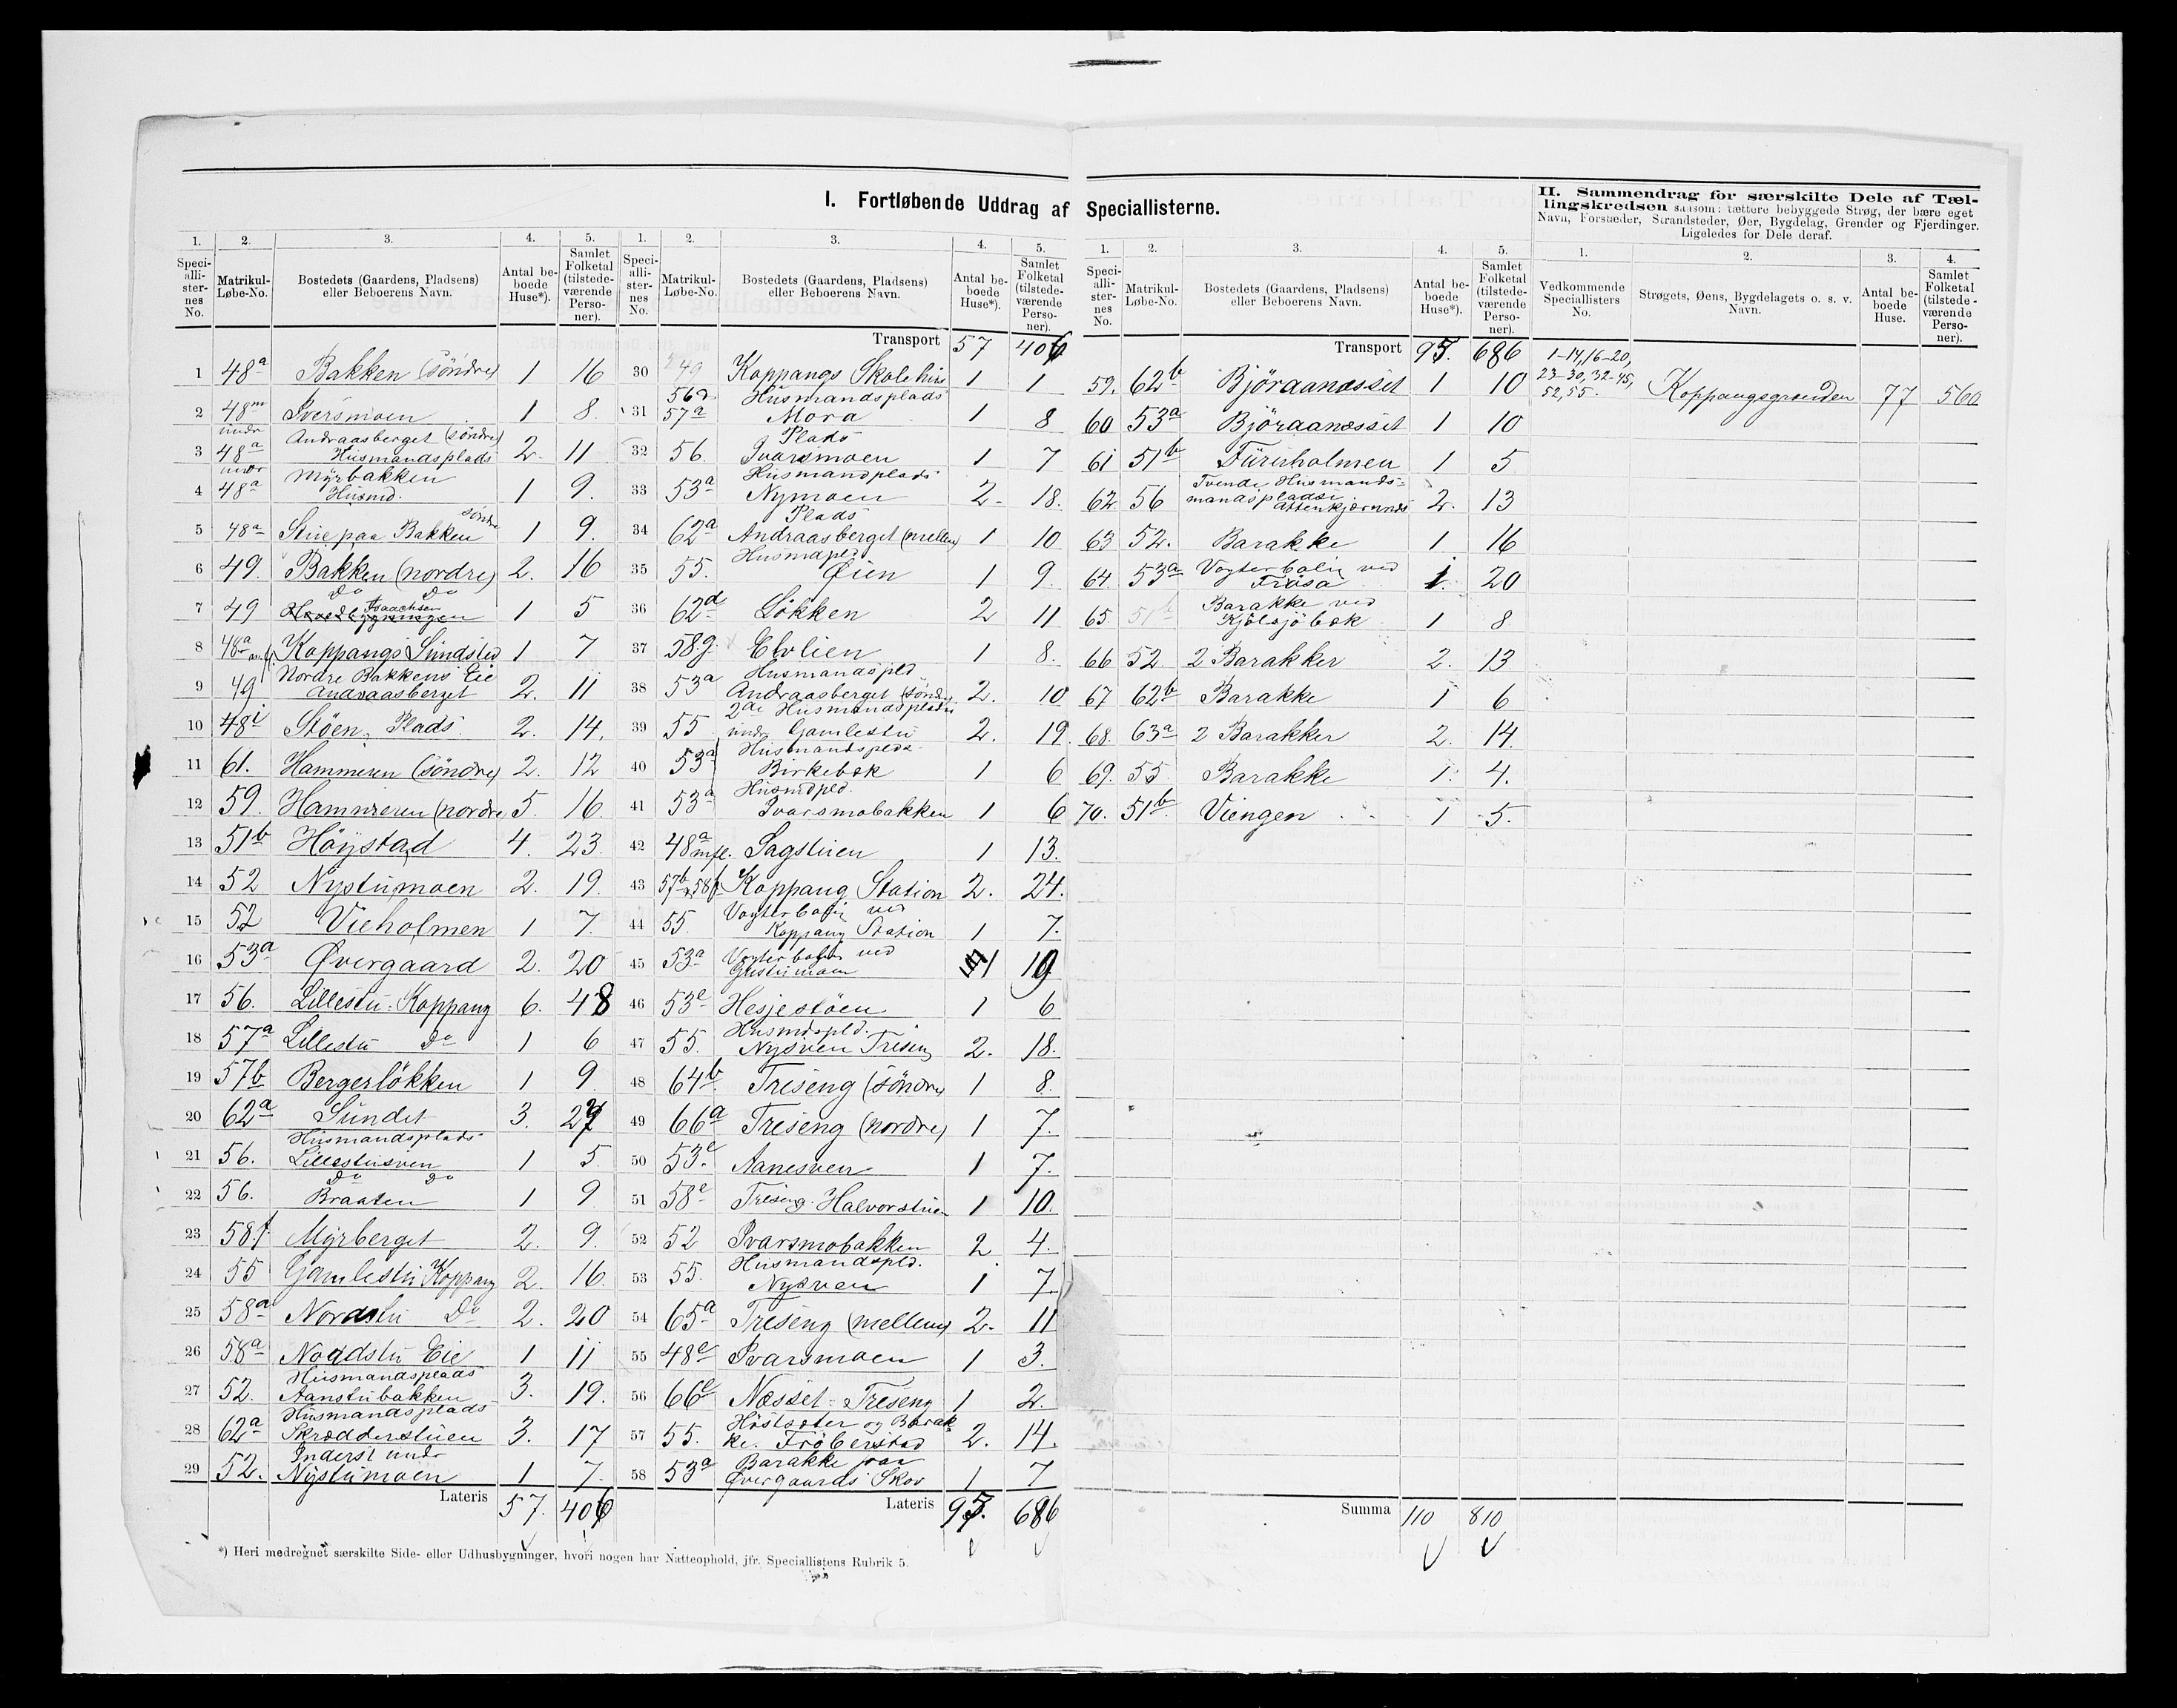 I. Fortløbende Uddrag af Speciallisterne.
II. Sammendrag for særskilte Dele af Tæl-
lingskredsen saasom: tættere bebyggede Strøg, der bære eget
Navn, Forstæder, Strandsteder, Øer, Bygdelag, Grender og Fjerdinger.
Ligeledes for Dele deraf.
1. 2. 3. 4. 5.
Speci-
alli-
ster-
nes
No.
Matrikul-
Løbe-No.
Bostedets (Gaardens, Pladsens)
eller Beboerens Navn.
Antal be-
boede
Huse*).
Samlet
Folketal
(tilstede-
værende
Perso-
ner).
1 48a Bakken (söndre) 1 16
2 48m Iversmoen 1 8
3 under 48a Andraasberget (söndre)
Husmandsplads 2. 11
4 under 48a Myrbakken
Husmd. 1 9.
5 48a Stue paa Bakken söndre 1 9.
6 49. Bakken (nordre) 2. 16
7 49 Do Do
Isaachsen 1 5
8 48a Koppangs Sundsted 1 7
9 49 Nordre Bakkens Eie
Andraasberget 2. 11
10 48i Stöen, Plads 2. 14.
11 61. Hammeren (söndre) 2. 12
12 59. Hammeren (nordre 5. 16.
13 51b Höystad 4. 23.
14 52 Nystumoen 2. 19.
15 52 Vieholmen 1 7.
16 53a Øvergaard 2. 20
17 56. Lillestu-Koppang 6. 48
18 57a Lillestu Do 1 6
19 57b Bergerlökken 1 9
20 62a Sundet 3. 27
21 56. Husmandsplads
Lillestusven 1 5
22 56. Do Do
Braaten 1 9
23 58f Myrberget 2. 9.
24 55 Gamlestu Koppang 2. 16.
25 58a Nordstu Do 2. 20
26 58a Nordstu Eie 1 11
27 52. Husmandsplads
Aanstubakken 3. 19.
28 62a Husmandsplads
Skrædderstuen 3. 17
29 52. Inderst under
Nystumoen 1 7.
Lateris 57. 406
1. 2. 3. 4. 5.
Speci-
alli-
ster-
nes
No.
Matrikul-
Løbe-No.
Bostedets (Gaardens, Pladsens)
eller Beboerens Navn.
Antal be-
boede
Huse*).
Samlet
Folketal
(tilstede-
værende
Perso-
ner).
Transport 57 406
30 49 Koppangs Skolehus 1 1
31 56a 57a Husmandsplads
Mora 1 8
32 56 Plads
Ivarsmoen 1 7
33 53a Husmandplads
Nymoen 2- 18.
34 62a Plads
Andraasberget (mellem) 1 10
35 55. Husmdpld
Øien 1 9.
36 62d Lökken 2 11
37 58.g. Elvlien 1 8.
38 53a Husmandspld
Andraasberget (söndre 2. 10
39 55 2de Husmandspladse
under Gamlestu 2. 19.
40 53a Husmandsplds
Birkebæk 1 6
41 53a Husmdpld.
Ivarsmobakken 1 6
42 48a mfl. Sagstuen 1 13.
43 57b, 58f Koppang Station 2. 24.
44 55. Vogterbolig ved
Koppang Station 1 7.
45 53a Vogterbolig ved
1 10
46 53e Hesjestöen 1 6
47 55. Husmdspld.
Nysven Treseng 2. 18.
48 64b. Treseng (söndre) 1 8.
49 66a Treseng (nordre) 1 7.
50 53e. Aanesven 1 7.
51 58e Treseng-Halvorstuen 1 10.
52 52 Ivarsmobakken 2 4.
53 55. Husmandspld.
Nysven 1 7.
54 65a Treseng (mellem) 2- 11
55 48e Ivarsmoen 1 3.
56 66e Næsset-Treseng 1 2.
57 55. Höstsæter og Barak-
ke. Fröberstad 2. 14.
58 53a Barakke paa
Øvergaards Skov 1 7
Lateris 95. 686
1. 2. 3. 4. 5.
Speci-
alli-
ster-
nes
No.
Matrikul-
Løbe-No.
Bostedets (Gaardens, Pladsens)
eller Beboerens Navn.
Antal be-
boede
Huse*).
Samlet
Folketal
(tilstede-
værende
Perso-
ner).
Transport 95. 686
59. 62b Björaanæsset 1 10
60 53a Björaanæsset 1 10
61 51b Furuholmen 1 5
62 56 Tvende Husmands-
mandspladse
2. 13
63 52. Barakke 1 16
64. 53a Vogterbolig ved
Frösa 1. 20
65 51b Barakke ved
Kjölsjöbæk 1 8
66 52. 2 Barakker 2. 13
67 62b Barakke 1 6
68. 63a 2 Barakker 2. 14.
69. 55 Barakke 1. 4.
70. 51b. Viengen 1 5.
Summa 110 810
1. 2. 3. 4.
Vedkommende
Speciallisters
No.
Strøgets, Øens, Bygdelagets o. s. v.
Navn.
Antal be-
boede
Huse.
Samlet
Folketal
(tilstede-
værende
Perso-
ner).
1-14, 16-20,
23-30, 32-45,
52, 55. Koppangsgrenden 77 560
*) Heri medregnet særskilte Side- eller Udhusbygninger, hvori nogen har Natteophold, jfr. Speciallistens Rubrik 5.